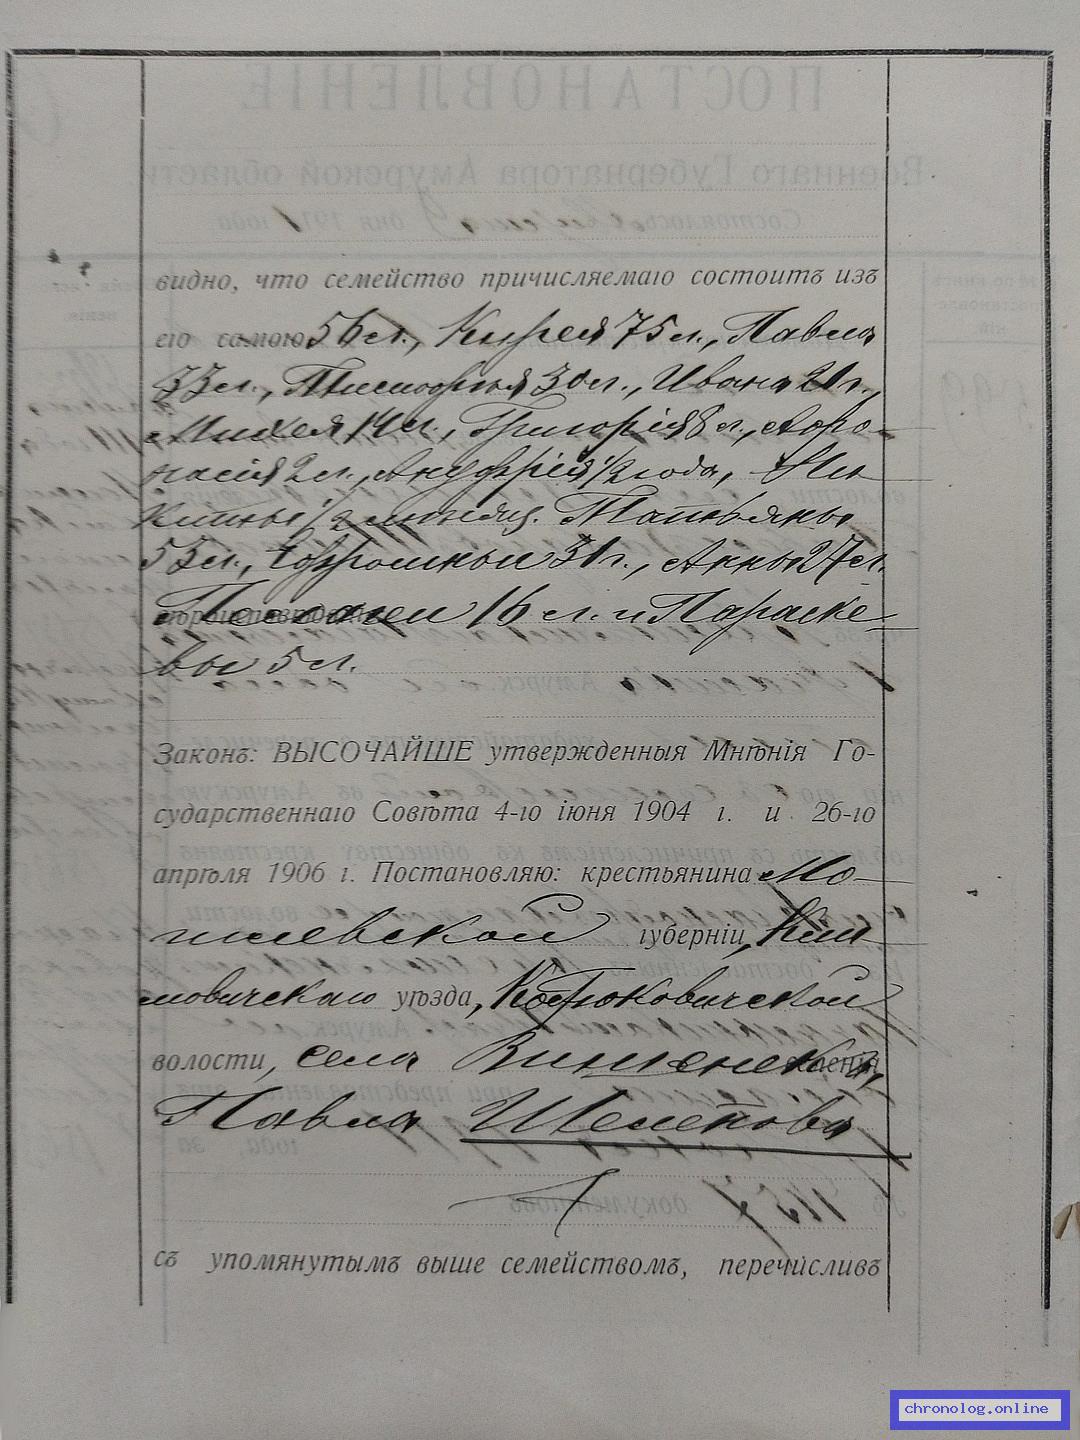 видно, что семейство причисляемаго состоитъ изъ
его самого 56 л., Кирея 75 л., Павла
33 л., Тимофея 30 л., Ивана 21 г.,
Михея 14 л., Григорія 8 л., Афо-
насія 2 л., Ануфрія 1/2 года, Ни
киты 1/2 мѣсяц. Татьяны
53 л., Ефросиньи 31 г., Анны 27 л.
Пелагеи 16 л. и Параске-
вы 5 л.
Законъ: ВЫСОЧАЙШЕ утвержденныя Мнѣнія Го-
сударственнаго Совѣта 4-го іюня 1904 г. и 26-го
апрѣля 1906 г. Постановляю: крестьянина Мо-
гилевской губерніи, Кли
мовичскаго уѣзда, Костюковичской
волости, села
Павла Шелепова
съ упомянутымъ выше семействомъ, перечисливъ
chronolog.online